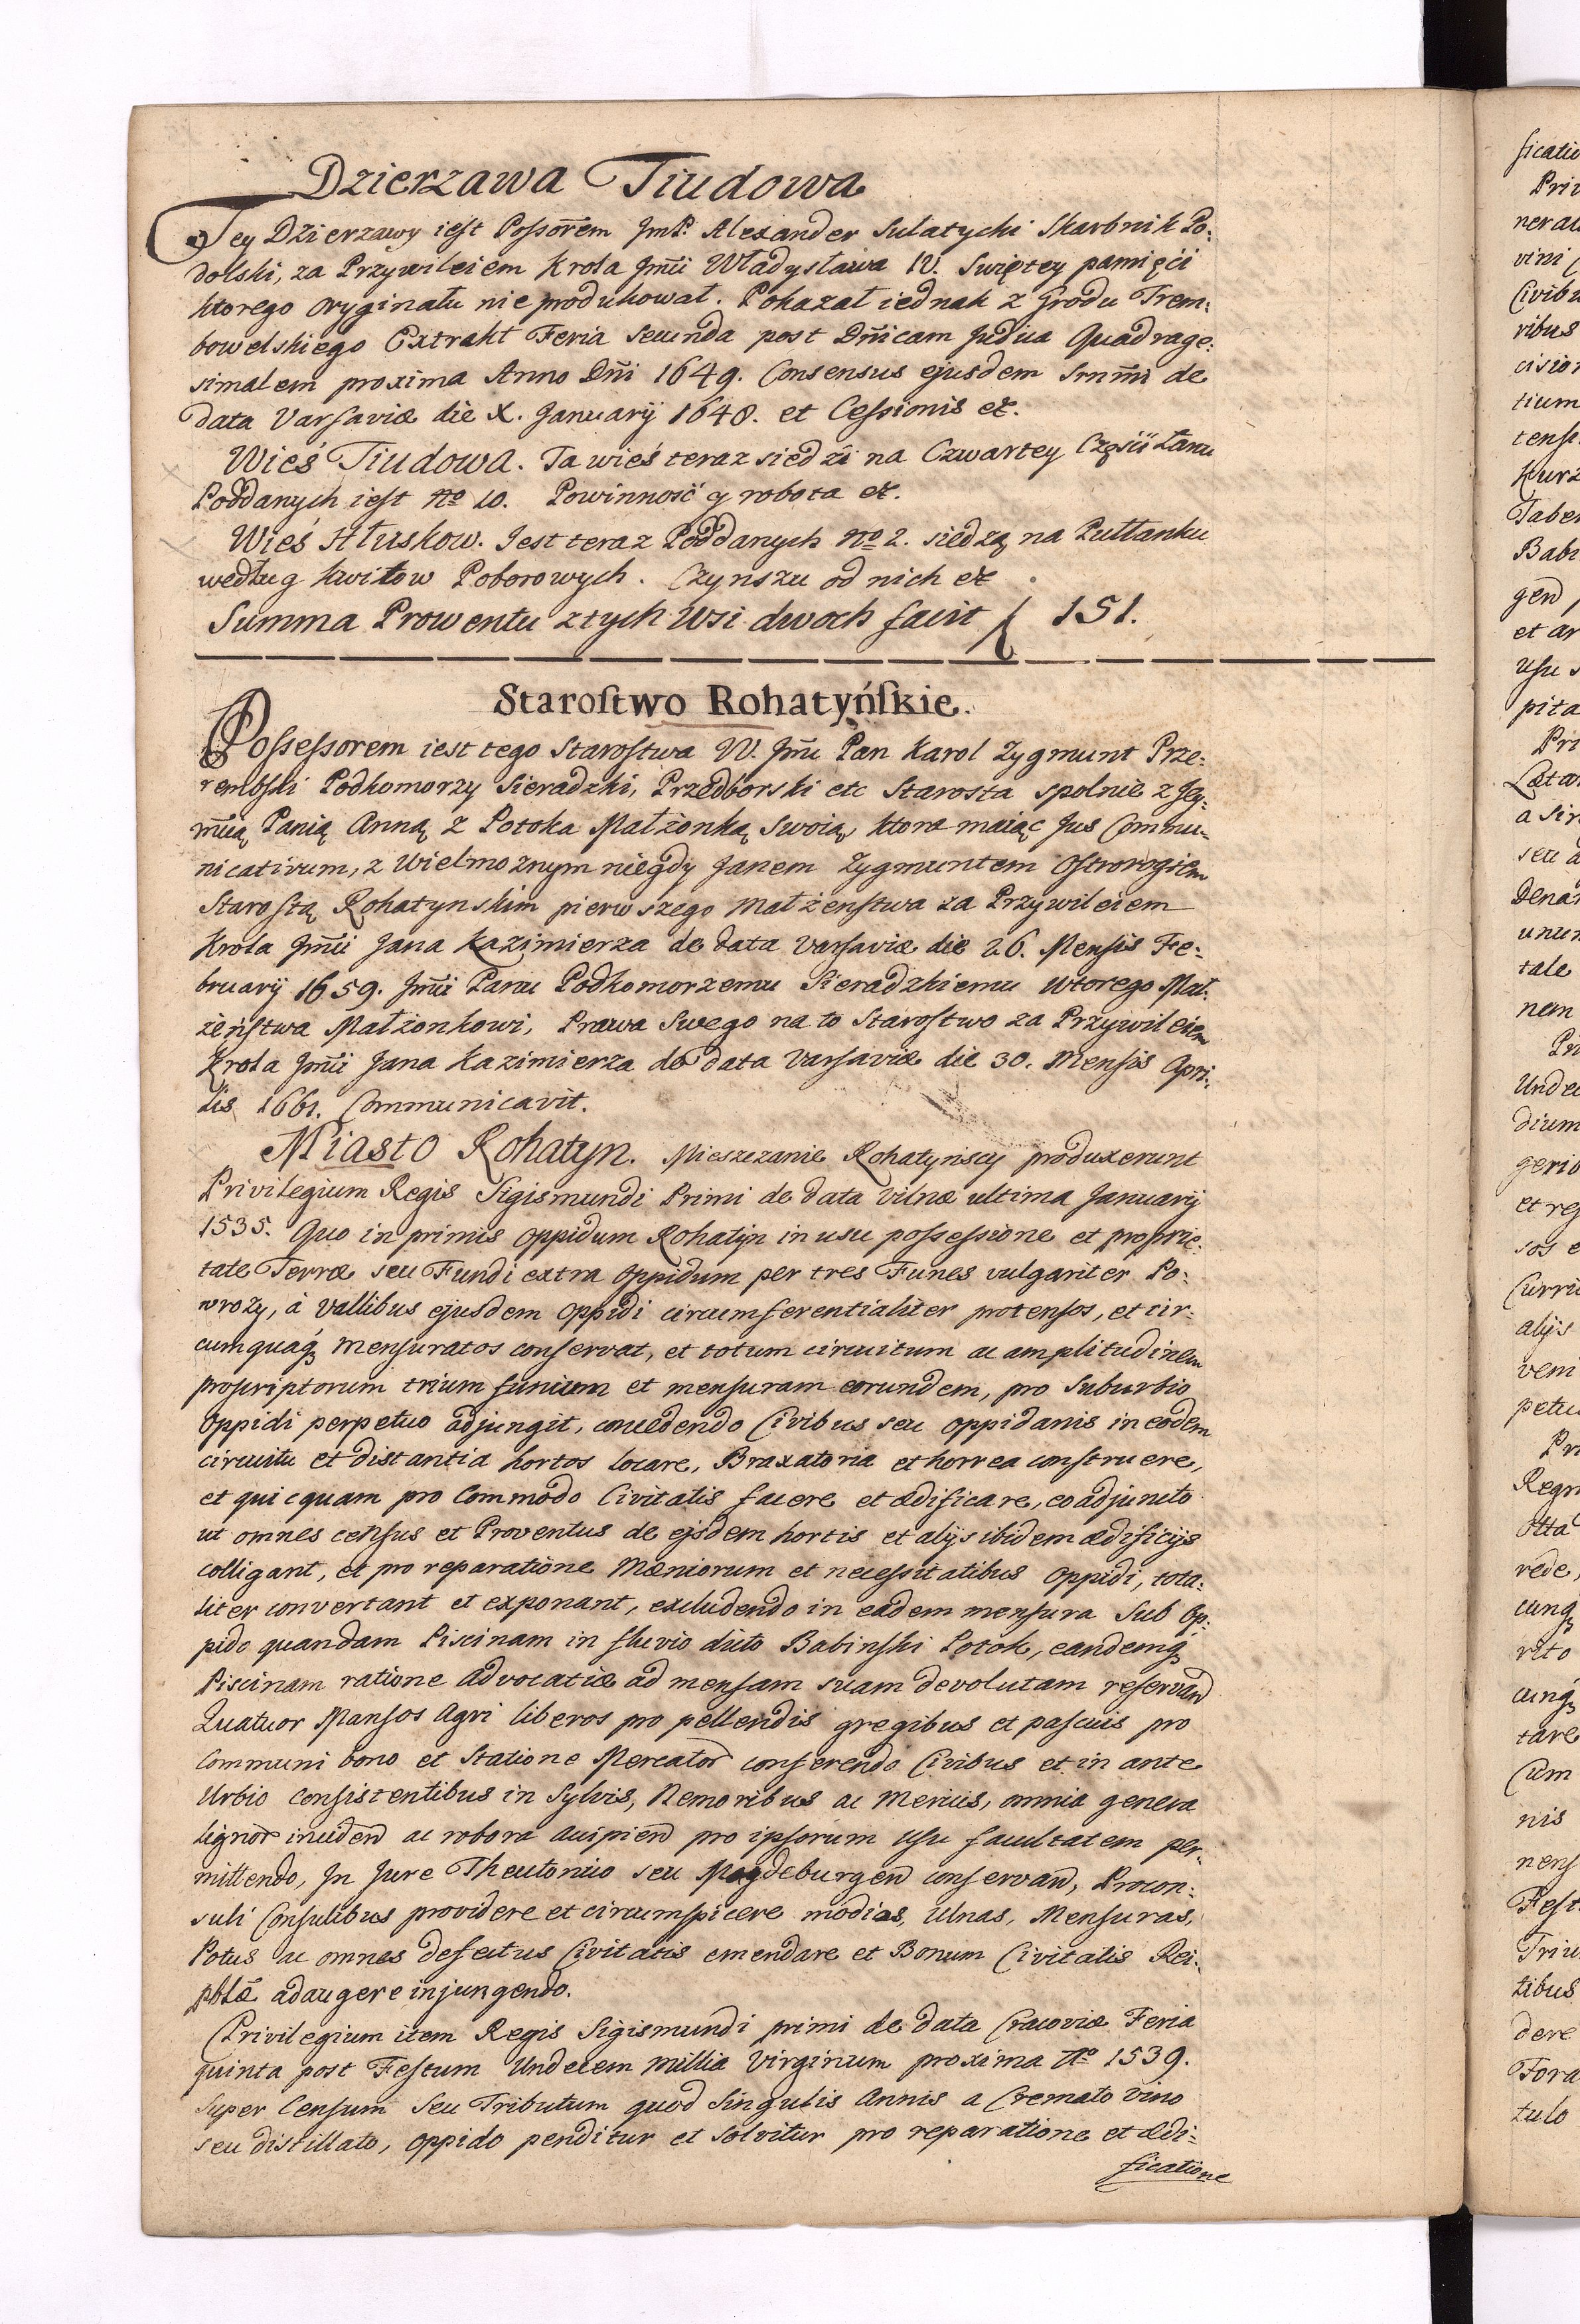 Dzierzawa Tiudowa
Tey Dzierzawy iest Possorem JmP. Alexander Sulatycki Skarbnik Po:
dolski, za Przywileiem Krola Jmci Władysława IV. Swiętey pamięci
ktorego oryginału nie produkował. Pokazał iednak z Grodu Trem:
bowelskiego Extrakt Feria Secunda post Dnicam Judica Quadrage:
simalem proxima Anno Dni 1649. Consensus ejusdem Srnmi de
data Varsaviæ die X. January 1648. et Cessionis et.
Wieś Tiudowa. Ta wieś teraz siedzi na Czwartey Częsci Łanu
Poddanych iest No 10. Powinność y robota et.
Wieś Hłuskow. Jest teraz Poddanych No 2. siedzą na Pułłanku
według kwitow Poborowych. Czynszu od nich et
Summa Prowentu z tych Wsi dwoch facit f 151.
Starostwo Rohatyńskie.
Possessorem iest tego Starostwa W. Jmc Pan Karol Zygmunt Prze:
rembski Podkomorzy Sieradzki, Przedborski etc Starosta spolnie z Jey:
mcią Panią Anną z Potoka Małżonką Swoią, ktora maiąc Jus Commu:
nicativum, z Wielmoznym niegdy Janem Zygmuntem Ostrorogiem
Starostą Rohatynskim pierwszego Małżenstwa za Przywileiem
Krola Jmci Jana Kazimierza de data Varsaviæ die 26. Mensis Fe:
bruarij 1659. Jmci Panu Podkomorzemu Sieradzkiemu wtorego Mał:
żeństwa Małżonkowi, Prawa Swego na to Starostwo za Przywileiem
Krola Jmci Jana Kazimierza de data Varsaviæ die 30. Mensis Apri:
lis 1661. Communicavit.
Miasto Rohatyn. Mieszczanie Rohatynscy produxerunt
Privilegium Regis Sigismundi Primi de data Vilnæ ultima Januarij
1535. Quo in primis Oppidum Rohatijn in usu possessione et proprie:
tate Terræ seu Fundi extra Oppidum per tres Funes vulgariter Po:
wrozy, à vallibus ejusdem Oppidi circumferentialiter protensos, et cir:
cumquaq3 mensuratos conservat, et totum circuitum ac amplitudinem
proscriptorum trium funium et mensuram eorundem, pro Suburbio
Oppidi perpetuo adjungit, concedendo Civibus seu oppidanis in eodem
circuitu et distantia hortos locare, Braxatoria et horrea construere,
et quicquam pro Commodo Civitatis facere et ædificare, eo adjuncto
ut omnes census et Proventus de ejsdem hortis et alijs ibidem ædificijs
colligant, et pro reparatione Mæniorum et necessitatibus Oppidi, tota:
liter convertant et exponant, excludendo in eadem mensura Sub Op:
pido quandam Piscinam in fluvio dicto Babinski Potok, eandemq3
Piscinam ratione advocatiæ ad mensam suam devolutam reservand
Quatuor Mansos Agri liberos pro pellendis gregibus et pascuis pro
Communi bono et Statione Mercator conferendo Civibus et in ante
Urbio consistentibus in Sylvis, Nemoribus ac Mericis, omnia genera
lignor incidend ac robora accipiend pro ipsorum usu facultatem per:
mittendo, In Jure Theutonico seu Magdeburgen conservand, Procon:
suli Consulibus providere et circumspicere modios, Ulnas, Mensuras,
Potus ac omnes defectus Civitatis emendare et Bonum Civitatis Rei:
pblæ adaugere injungendo.
Privilegium item Regis Sigismundi primi de data Cracoviæ Feria
quinta post Festum Undecem Millia Virginum proxima Ao 1539.
Super Censum Seu Tributum quod Singulis Annis a Cremato vino
seu distillato, oppido penditur et Solvitur pro reparatione et ædi:
ficatione